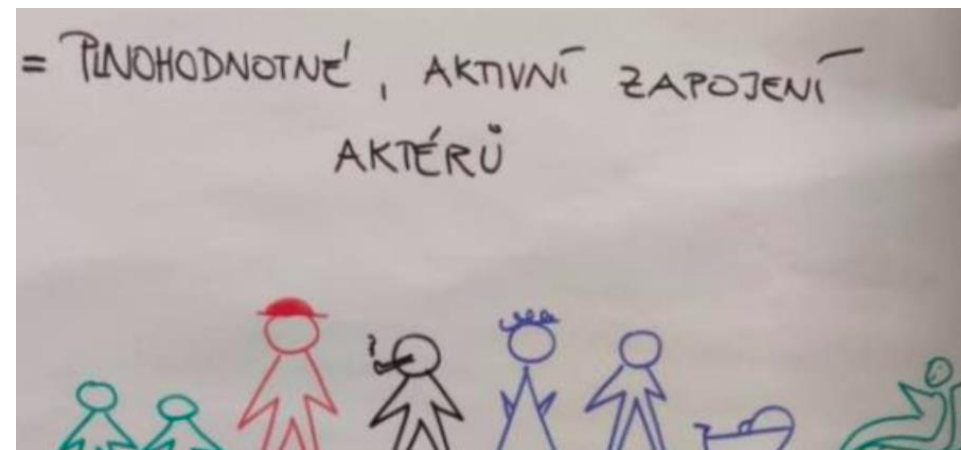 = PLNOHODNOTNÉ, AKTIVNÍ ZAPOJENÍ
AKTÉRŮ